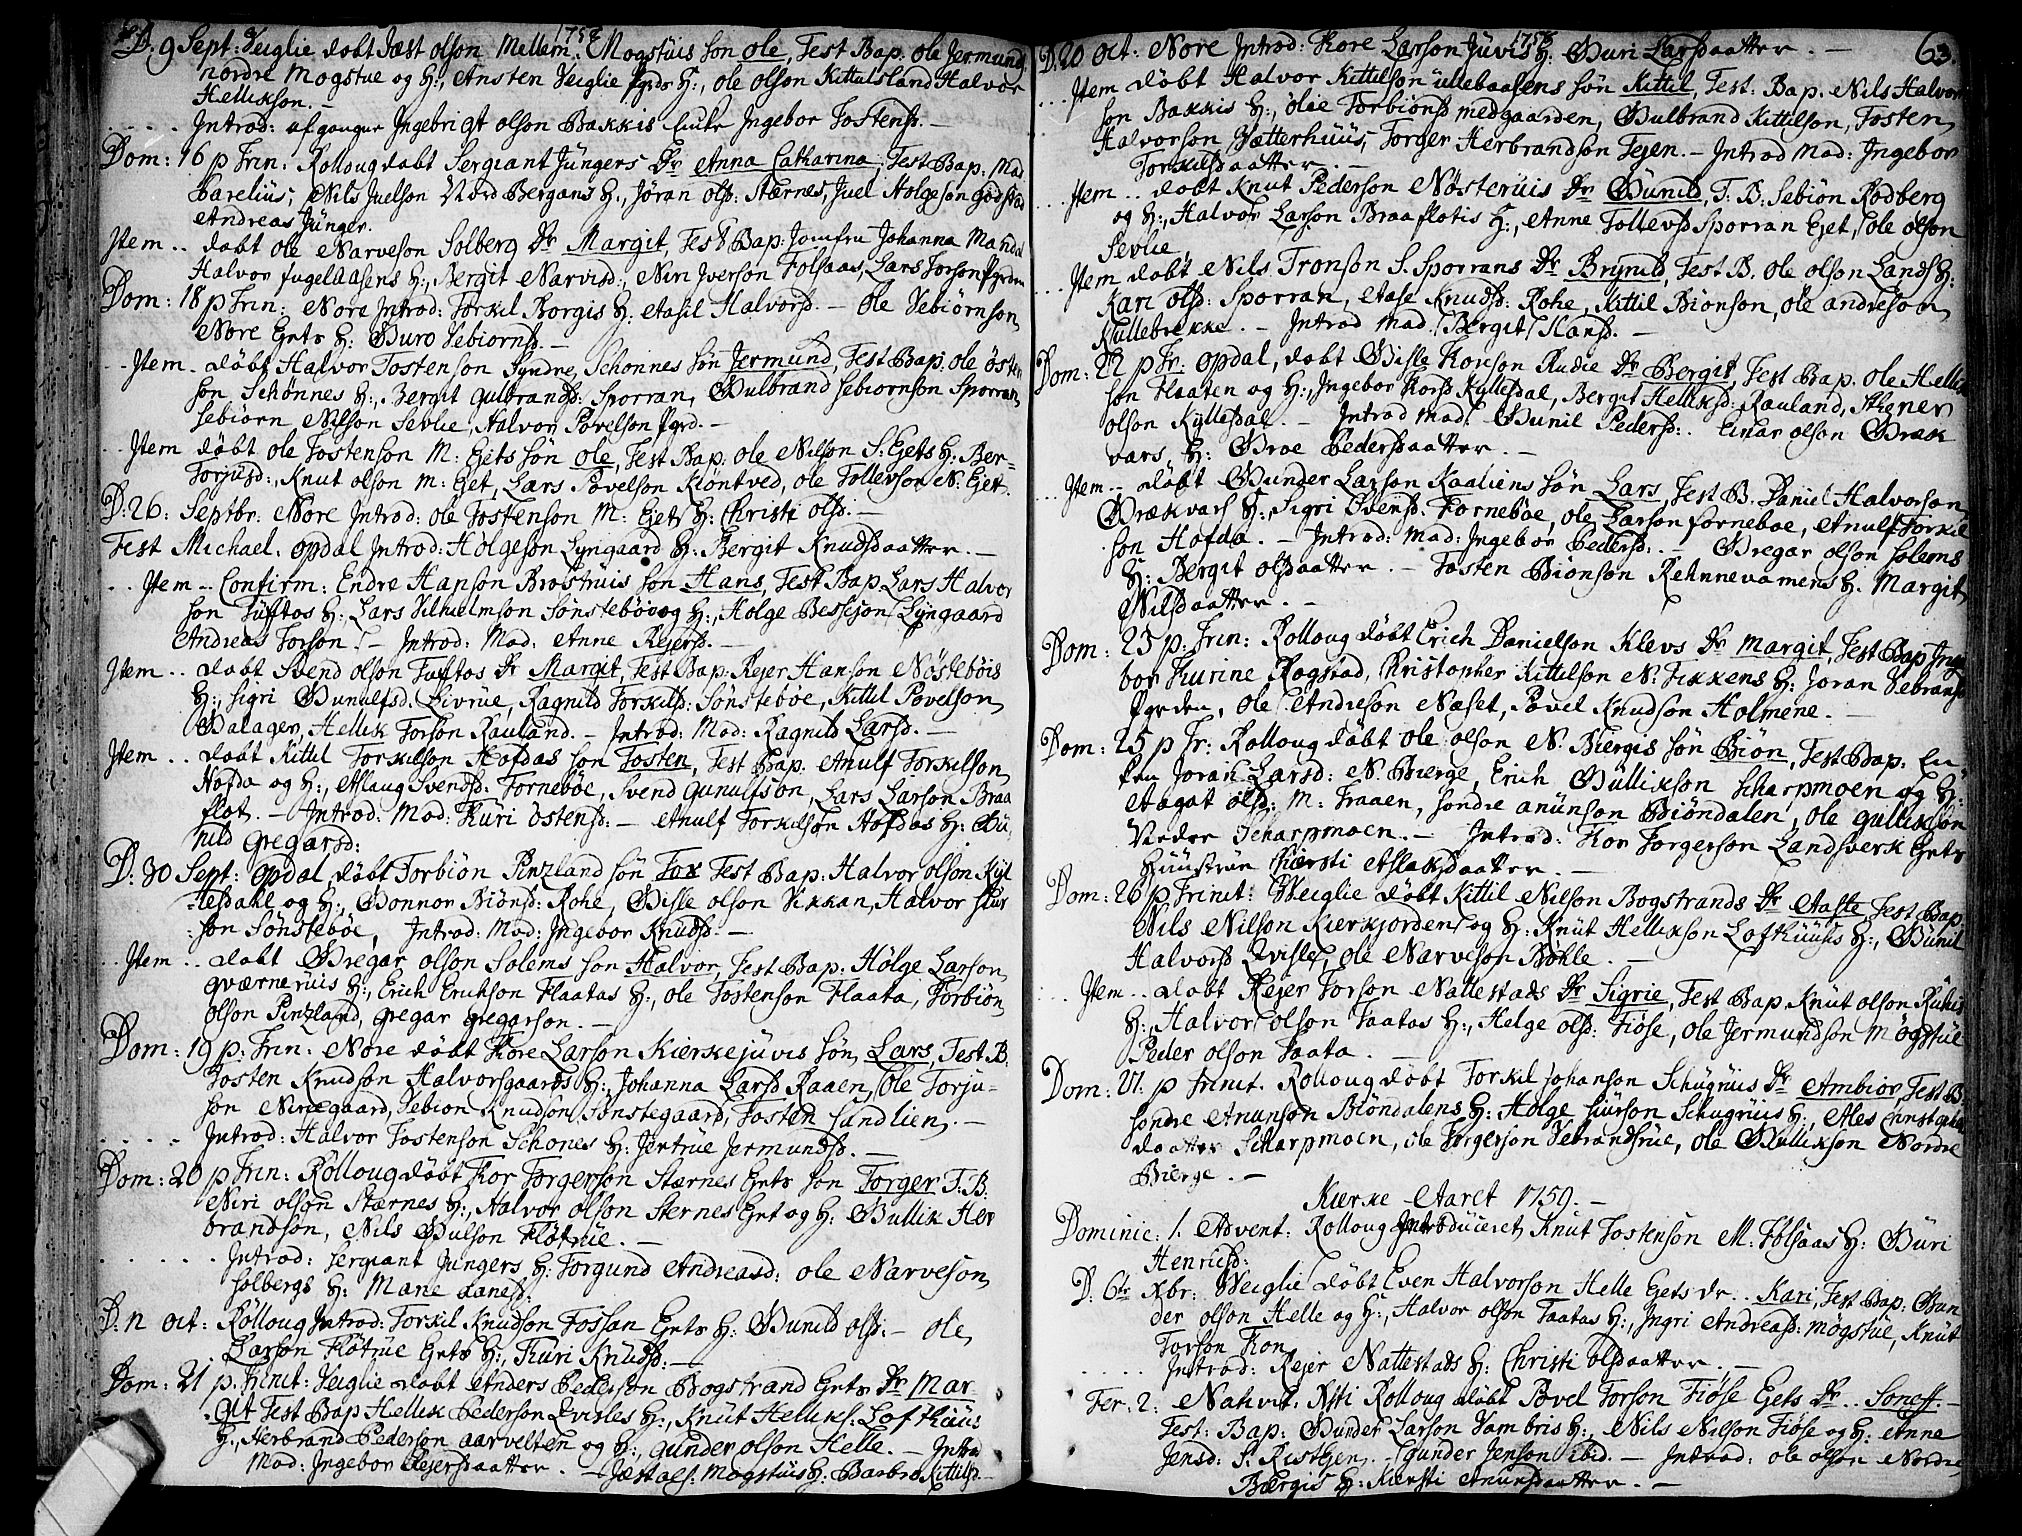 1758
D. 9 Sept: Veiglie døbt Jæst olson Mellem Mogstuis søn Ole, Test Bap: ole Jermunds
nordre Mogstue og H:, Ansten Veiglie pgrds H:, Ole olson Kittilsland Halvor
Hellikson. –
Introd: afgangne Ingebrigt olson Bakkis Enke Ingebor Tostensd. –
Dom: 16 p Trin: Rolloug døbt Sergiant Jüngers Dr Anna Catharina, Test Bap. Mad.
Barelius, Nils Juelson Nord Bergans H:, Jøran olsd: Stærnes, Juel Holgeson Godstad
Andreas Jünger.
Jtem .. døbt ole Narveson Solberg Dr Margit, Test Bap. Jomfru Johanna Mandal
Halvor fugelaasens H:, Bergit Narvisd:, Niri Jverson Folsaas, Lars Torson Pgrden
Dom: 18 p Trin: Nore Introd: Torkil Borgis H: Aasil Halvorsd. – Ole Sebiørnson
Nore Gets H: Guro Sebiørnsd. –
Jtem. døbt Halvor Tostenson Syndre Schonnes søn Jermund, Test Bap: ole østen
son Schønnes H:, Bergit Gulbrandsd: Sporran, Gulbrand Sebiørnson Sporran
Sebiørn Nilson Sevlie, Halvor Povelson Pgrd. –
Jtem døbt ole Tostenson M: Gets søn ole, Test Bap: ole Nilson S: Gets H: Ber-
Torjusd:, Knut olson M: Get, Lars Povelson Kiontved, ole Tollevson N. Get.
D: 26: Septbr: Nore Introd: ole Tostenson M: Gets H: Christi olsd: –
Fest Michael. Opdal Introd: Holgeson Lyngaard H: Bergit Knudsdaatter. –
Jtem .. Confirm: Endre Hanson Brøstruis søn Hans, Test Bap: Lars Halvor
son Tufftos H: Lars Vilhelmson Sønstebøe og H:, Holge Besseson Lyngaard
Andreas Torson. – Introd: Mod: Anne Rejersd. –
Jtem .. døbt Svend olson Tufftos Dr Margit, Test Bap: Rejer Hanson Nøstebøis
H:, Sigri Gunulfsd. Livrue, Ragnild Torkilsd: Sønstebøe, Kittil Povelson
Galager, Hellik Torson Rauland. – Introd: Mod: Ragnild Larsd. –
Jtem .. døbt Kittil Torkilson Hofdas søn Tosten, Test Bap: Anulf Torkilson
Hofda og H:, Aslaug Svendsd: Tornebøe, Svend Gunulfson, Lars Larson Braa
flot. – Introd: Mod: Kuri østensd: – Anulf Torkilson Hofdas H: Gu
nild Gregarsd:
D: 30 Sept: Opdal døbt Torbiøn Pinzland søn Tov Test Bap: Halvor olson Kyl
lesdahl og H:, Gonnor Biønsd: Rohe, Gisle olson Vikkan, Halvor stur
son Sønstebøe, Introd: Mod: Ingebor Knudsd. –
Jtem .. døbt Gregar olson Solems søn Halvor, Test Bap: Holge Larson
qværneruis H:, Erich Erichson Flaatas H:, ole Tostenson Flaata, Torbiøn
olson Pinzland, gregar gregarson. –
Dom: 19 p: Trin: Nore døbt Kore Larson Kierkejuvis søn Lars, Test B.
Tosten Knudson Halvorsgaards H:, Johanna Larsd Raaen, Ole Torju-
son Nirregaard, Sebiøn Knudson Sønstegaard, Tosten Sandlien. –
Introd: Halvor Tostenson Schones H: Jertrue Jermundsd. –
Dom: 20 p Trin: Rolloug døbt Kor Torgerson Stærnes Gets søn Torger T. B.
Niri olson Stærnes H:, Halvor olson Sternes Get og H: Gullik Her
brandson, Nils Gulson Fløtrue. –
Introd: Sergiant Jüngers H: Torgund Andreasd: ole Narveson
Solbergs H: Mane Aanesd:
D: 12 Oct: Rolloug Introd: Torkil Knudson Fossan Gets H: Gunild olsd: – ole
Larson Fløtrue Gets H:, Kuri Knudsd: –
Dom: 21 p. Trinit: Veiglie døbt Anders Pederson Bogstrand Gets Dr Mar
git Test Bap Hellik Pederson Qvisles H:, Knut Helliks: Lofthuus
H:, Herbrand Pederson aarvelten og H:, gunder olson Helle. – Introd
Mod: Ingebor Rejersdaatter. – Jæst aes: Mogstuis H: Barbro Kittilsd.
1758
63.
D. 20 Oct: Nore Introd: Kore Larson Juvis H: Guri Larsdaatter. –
Jtem døbt Halvor Kittilson ullebaasens søn Kittil, Test: Bap. Nils Halvor
son Bakkis H:, Olie Torbiønsd medgaarden, Gulbrand Kittilson, Tosten
Halvorson Vætterhuus, Torger Herbrandson Tejen. – Introd Mod: Ingebor
Torkilsdaatter. –
Jtem .. døbt Knut Pederson Nøsteruis Dr Gunild, T: B: Sebiøn Rodberg
og H:, Halvor Larson Braaflotis H:, Anne Tollevsd Sporran Get, Ole olson
Sevlie
Jtem døbt Nils Tronson S. Sporrans Dr Brynild, Test B. Ole olson Lands H:
Kari olsd: Sporran, Aase Knudsd: Rohe, Kittil Biønson, ole andreson
Kullebrekke. – Introd Mod. Bergit Hansd. –
Dom: 22 p Tr: Opdal, døbt Gisle Koreson Rudie Dr Bergit, Test Bap. Ole Hellik
son Haaten og H:, Ingebor Korsd Kyllesdal, Bergit Helliksd: Rauland, Stener
olson Kyllesdal. – Introd Mod. Gunil Pedersd: Einar olson Bræk
vars H: Groe Pedersdaatter. –
Jtem – døbt Gunder Larson Kaaliens søn Lars, Test B. Daniel Halvorson
Brækvars H:, Sigri Svensd: Forneboe, Ole Larson forneboe, Anulf Torkil
son Hofda. – Introd: Mod: Ingebor Pedersd: – Gregar olson Solems
H: Bergit olsdaatter. – Tosten Biønson Rehnnevamens H. Margit
Nilsdaatter. –
Dom: 23 p. Trin: Rolloug døbt Erich Danielson Klevs Dr Margit, Test Bap Inge
bor Kurine Rogstad, Christopher Kittilson N. Tikkens H: Joran Vebransd
Pgrden, Ole Andreson Næset, Povel Knudson Holmene. –
Dom: 25 p Tr: Rolloug døbt Ole olson N. Biergis søn Biøn, Test Bap: En-
ken Joran Larsd: N. Bierge, Erich Gullikson Scharpmoen og H:
Aagot olsd: M: Traaen, Sondre anunson Biøndalen, Ole gullikson
Nedre Scharpmoen. – Introd: Kor Torgerson Landsverk Gets
Huustrue Kiersti Aslaksdaatter. –
Dom: 26 p. Trinit: Weiglie døbt Kittil Nilson Bogstrands Dr Aaste Test Bap
Nils Nilson Kierkjorden og H: Knut Hellikson Lofthuus H:, Gunil
Halvorsd Qvisle, Ole Narveson Bøhle. –
Jtem .. døbt Rejer Torson Nattestads Dr Sigrie, Test Bap Knut olson Rukis
H:, Halvor olson Taatas H:, Helge olsd: Fiøse, ole Jermundson Mogstue
Peder olson Taata. –
Dom: Ul. p Trinit. Rolloug døbt Torkil Johanson Schugruis Dr Ambiør, Test B
Sondre Anunson Biøndalens H: Holge Siurson Schugruis H:, Ales Christopher
daatter Scharpmoen, ole Torgerson Vebrandsrue, Ole Gullikson Nordre
Bierge. –
Kierke Aaret 1759. –
Dominic: 1. Advent: Rolloug Introduceret Knut Tostenson M: Folsaas H: Guri
Henrichsd:
D: 6te Xbr: Weiglie døbt Even Halvorson Helle Gets Dr. Kari, Test Bap: Gun
der olson Helle og H:, Halvor olson Taatas H:, Ingri Andreasd: Mogstue, Knut
Torson Kon
Introd: Rejer Nattestads H: Christi olsdaatter. –
Fer: 2. Nativit. Xsti Rolloug døbt Povel Torson Fiøse Gets Dr. Soneff. –
Test: Bap: Gunder Larson Vambris H:, Nils Nilson Fiøse og H: Anne
Jensd: S. Kistgen, Gunder Jenson ibid. – Introd: ole olson Nordre
Bærgis H: Kiersti Anunsdaatter. –